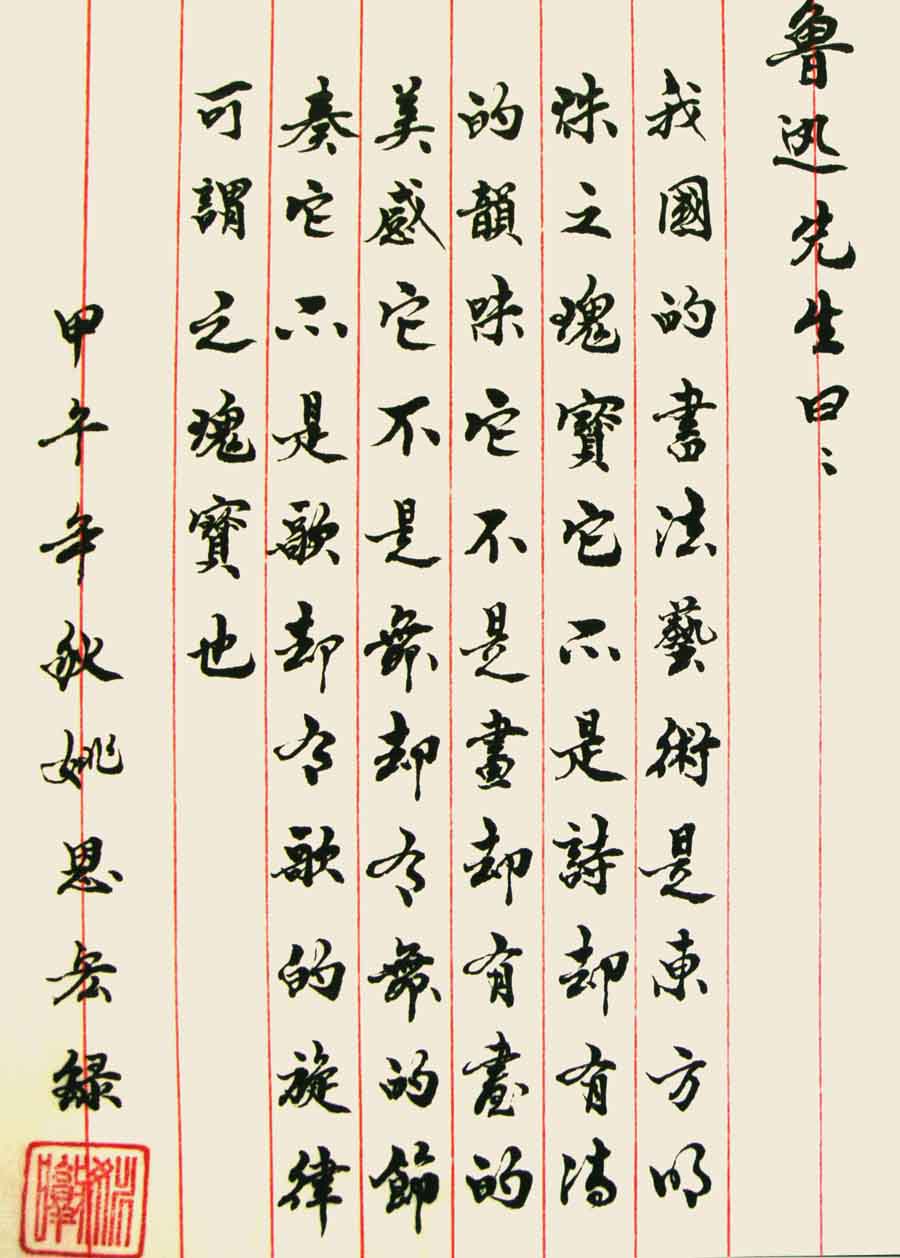 魯迅先生曰：
我國的書法藝術是東方明
珠之瑰寶它不是詩却有詩
的韻味它不是畫却有畫的
美感它不是舞却有舞的節
奏它不是歌却有歌的旋律
可謂之瑰寶也
甲午年秋姚錄